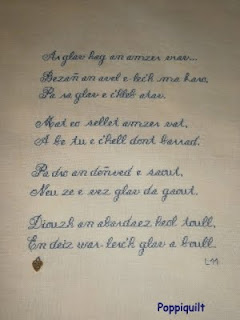 Ar glav hag an amzer vrav...
Bezañ an avel e lec'h ma harz,
Pa ra glav e c'hleb atav.
Mat eo sellet amzer vat,
A be tu e c'hell dont barrad.
Pa dro an deñved e saout,
Neuze e vez glav da gaout.
Diouzh an abardaez heol toull,
En deiz war-lerc'h glav a boull.
LM
Poppiquilt